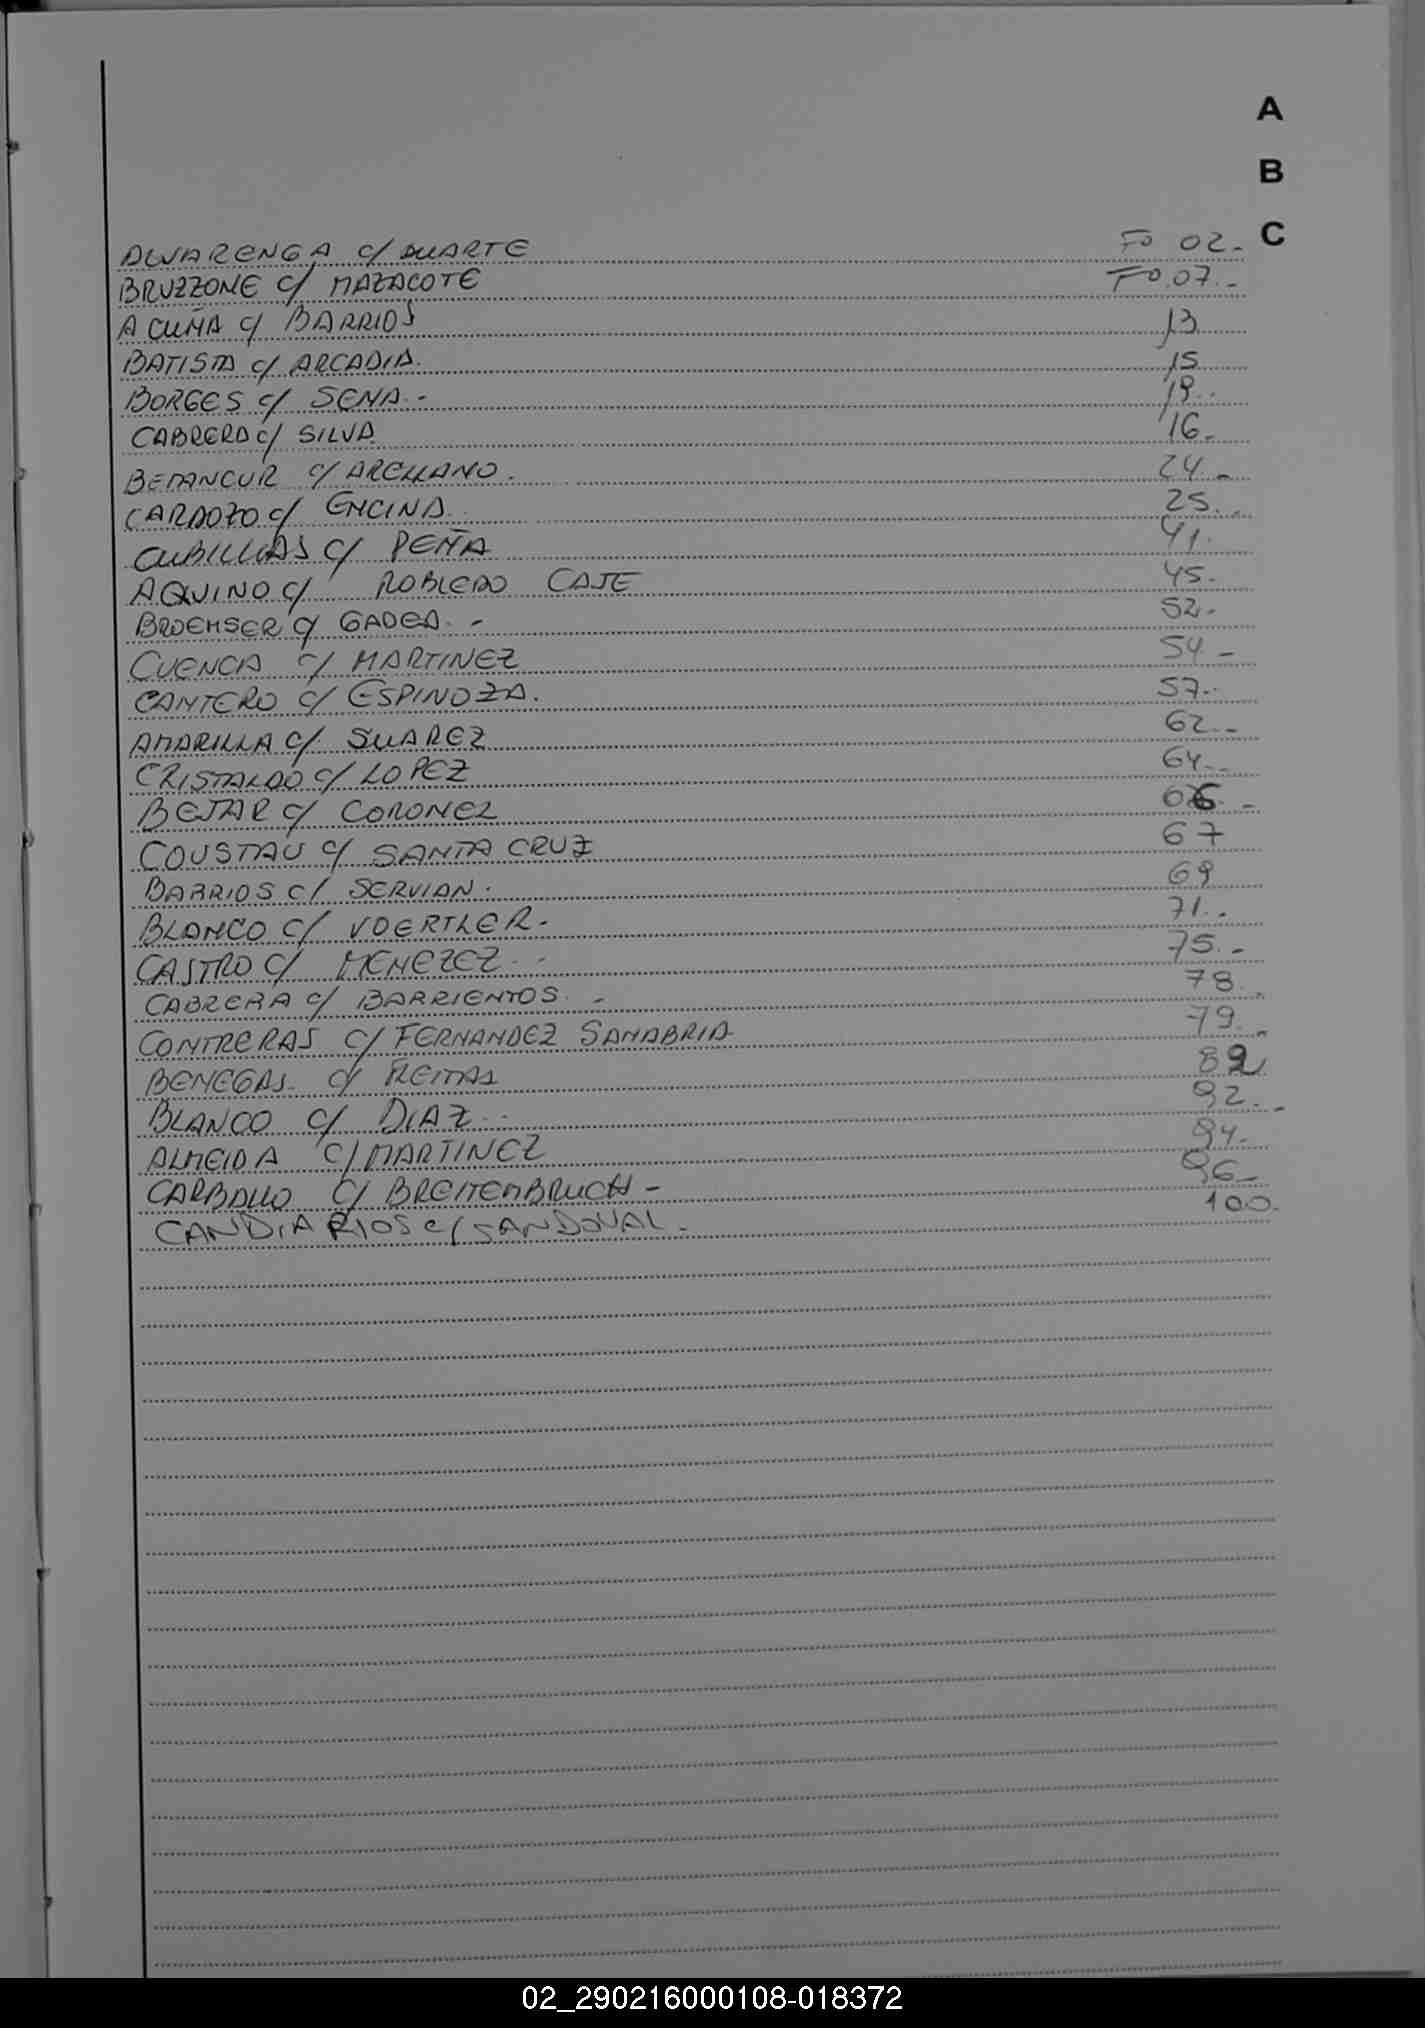 A
B
C
ALVARENGA c/ DUARTE Fo 02.-
BRUZZONE c/ MAZACOTE Fo.07.-
ACUÑA c/ BARRIOS 13
BATISTA c/ ARCADIA. 15
BORGES c/ SENA.- 19.
CABRERA c/ SILVA 16.
BETANCUR c/ ARELLANO. 24.-
CARDOZO c/ ENCINA. 25.
CUBILLAS c/ PEÑA 41.
AQUINO c/ ROBLEDO CAJE 45.
BROEMSER c/ GADEA.- 52.-
CUENCA c/ MARTINEZ 54.-
CANTERO c/ ESPINOZA. 57.-
AMARILLA c/ SUAREZ 62.-
CRISTALDO c/ LOPEZ 64.-
BEJAR c/ CORONEL 66.-
COUSTAU c/ SANTA CRUZ 67
BARRIOS c/ SERVIAN. 69
BLANCO c/ VOERTLER.- 71.-
CASTRO c/ MENEZEZ.- 75.-
CABRERA c/ BARRIENTOS.- 78.
CONTRERAS c/ FERNANDEZ SANABRIA 79.-
BENEGAS c/ FREITAS 82
BLANCO c/ DIAZ.. 92.-
ALMEIDA c/ MARTINEZ 94.
CARBALLO c/ BREITEMBRUCH - 96.-
CANDIA RIOS c/ SANDOVAL. 100.
02_290216000108-018372